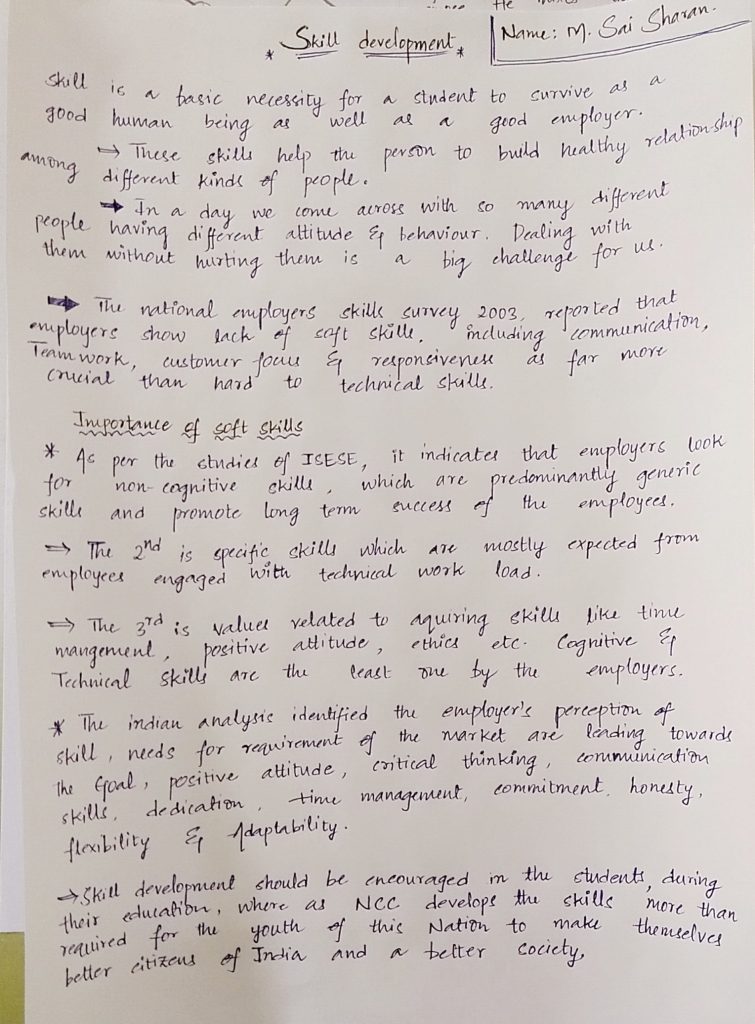 He
* Skill development *
Name: M. Sai Sharan.
Skill is a basic necessity for a student to survive as a
good human being as well as a good employer.
→ These skills help the person to build healthy relationship
among different kinds of people.
→ In a day we come across with so many different
people having different attitude & behaviour. Dealing with
them without hurting them is a big challenge for us.
→ The national employers skills survey 2003, reported that
employers show lack of soft skills, including communication,
Team work, customer focus & responsiveness as far more
crucial than hard to technical skills.
Importance of soft skills
* As per the studies of ISESE, it indicates that employers look
for non-cognitive skills, which are predominantly generic
skills and promote long term success of the employees.
⇒ The 2nd is specific skills which are mostly expected from
employees engaged with technical work load.
⇒ The 3rd is values related to aquiring skills like time
mangement, positive attitude, ethics etc. Cognitive &
Technical skills are the least one by the employers.
* The indian analysis identified the employer's perception of
skill, needs for requirement of the market are leading towards
the Goal, positive attitude, critical thinking, communication
skills, dedication, time management, commitment, honesty,
flexibility & Adaptability.
→ Skill development should be encouraged in the students, during
their education, where as NCC develops the skills more than
required for the youth of this Nation to make themselves
better citizens of India and a better society,